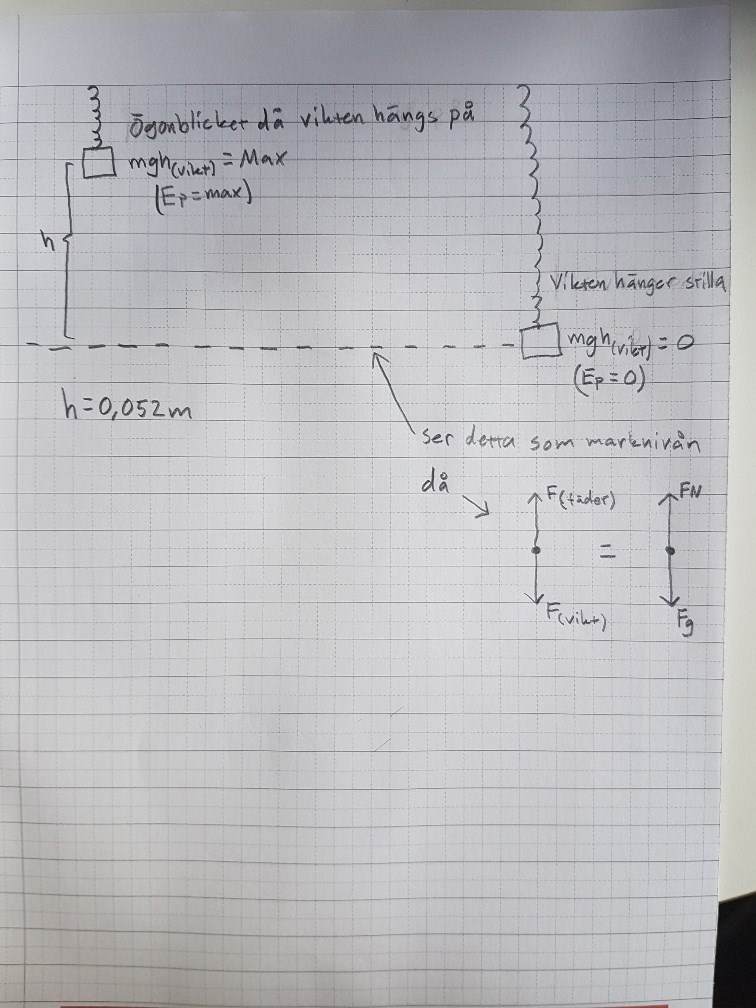 Ögonblicket då vikten hängs på
mgh(vikt) = Max
(Ep = max)
h
Vikten hänger stilla
mgh(vikt) = 0
(Ep = 0)
h = 0,052 m
Ser detta som marknivån
då
F(fäder)
FN
=
F(vikt)
Fg